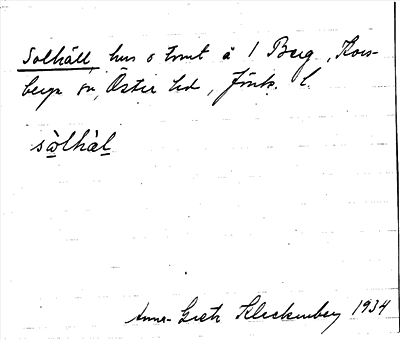 Solhäll hus o tomt å 1 Berg, Kors-
berga sn, Östra hd, Jönk. l.
sòlhàl
Anna-Greta Kleckenberg 1934